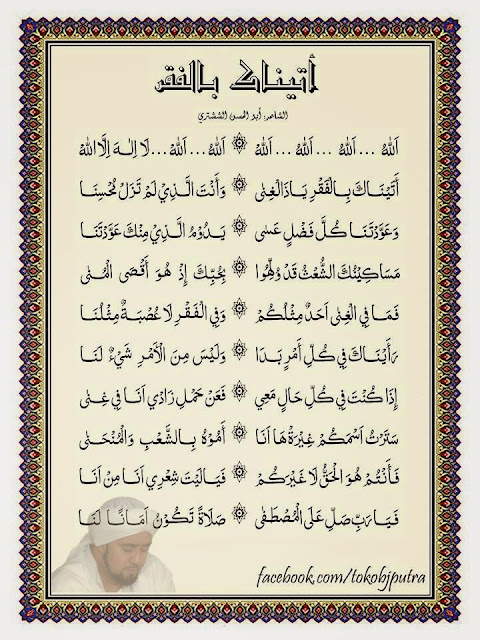 أتيناك بالفقر
الشاعر: أبو الحسن الششتري
اَللهُ ... اَللهُ ... اَللهُ ... اَللهُ ۞ اَللهُ ... اَللهُ ... لَا إِلٰهَ إِلَّا اللهُ
أَتَيْنَاكَ بِالْفَقْرِ يَاذَا الْغِنٰى ۞ وَأَنْتَ الَّذِيْ لَمْ تَزَلْ مُحْسِنَا
وَعَوَّدْتَنَا كُلَّ فَضْلٍ عَسٰى ۞ يَدُوْمُ الَّذِيْ مِنْكَ عَوَّدْتَنَا
مَسَاكِيْنُكَ الشُّعْثُ قَدْ وَلِهُوْا ۞ بِحُبِّكَ إِذْ هُوَ أَقْصَى الْمُنٰى
فَمَا فِي الْغِنٰى اَحَدٌ مِثْلُكُمْ ۞ وَفِي الْفَقْرِ لَا عُصْبَةٌ مِثْلُنَا
رَأَيْنَاكَ فِيْ كُلِّ أَمْرٍ بَدَا ۞ وَلَيْسَ مِنَ الْأَمْرِ شَيْءٌ لَنَا
إِذَا كُنْتَ فِيْ كُلِّ حَالٍ مَعِي ۞ فَعَنْ حَمْلِ زَادِيْ اَنَا فِيْ غِنٰى
سَتَرْتُ اسْمَكُمْ غِيْرَةً هَا اَنَا ۞ أُمَوِّهُ بِالشَّعْبِ وَالْمُنْحَنٰى
فَأَنْتُمْ هُوَ الْحَقُّ لَا غَيْرُكُمْ ۞ فَيَالَيْتَ شِعْرِيْ اَنَا مَنْ اَنَا
فَيَا رَبِّ صَلِّ عَلَى الْمُصْطَفٰى ۞ صَلَاةً تَكُوْنُ اَمَانًا لَنَا
facebook.com/tokobjputra